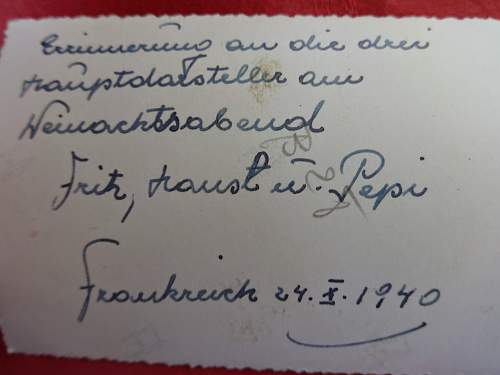 Erinnerung an die drei
Hauptdarsteller am
Weinachtsabend
Fritz, Hansl u. Pepi
Frankreich 24. X. 1940